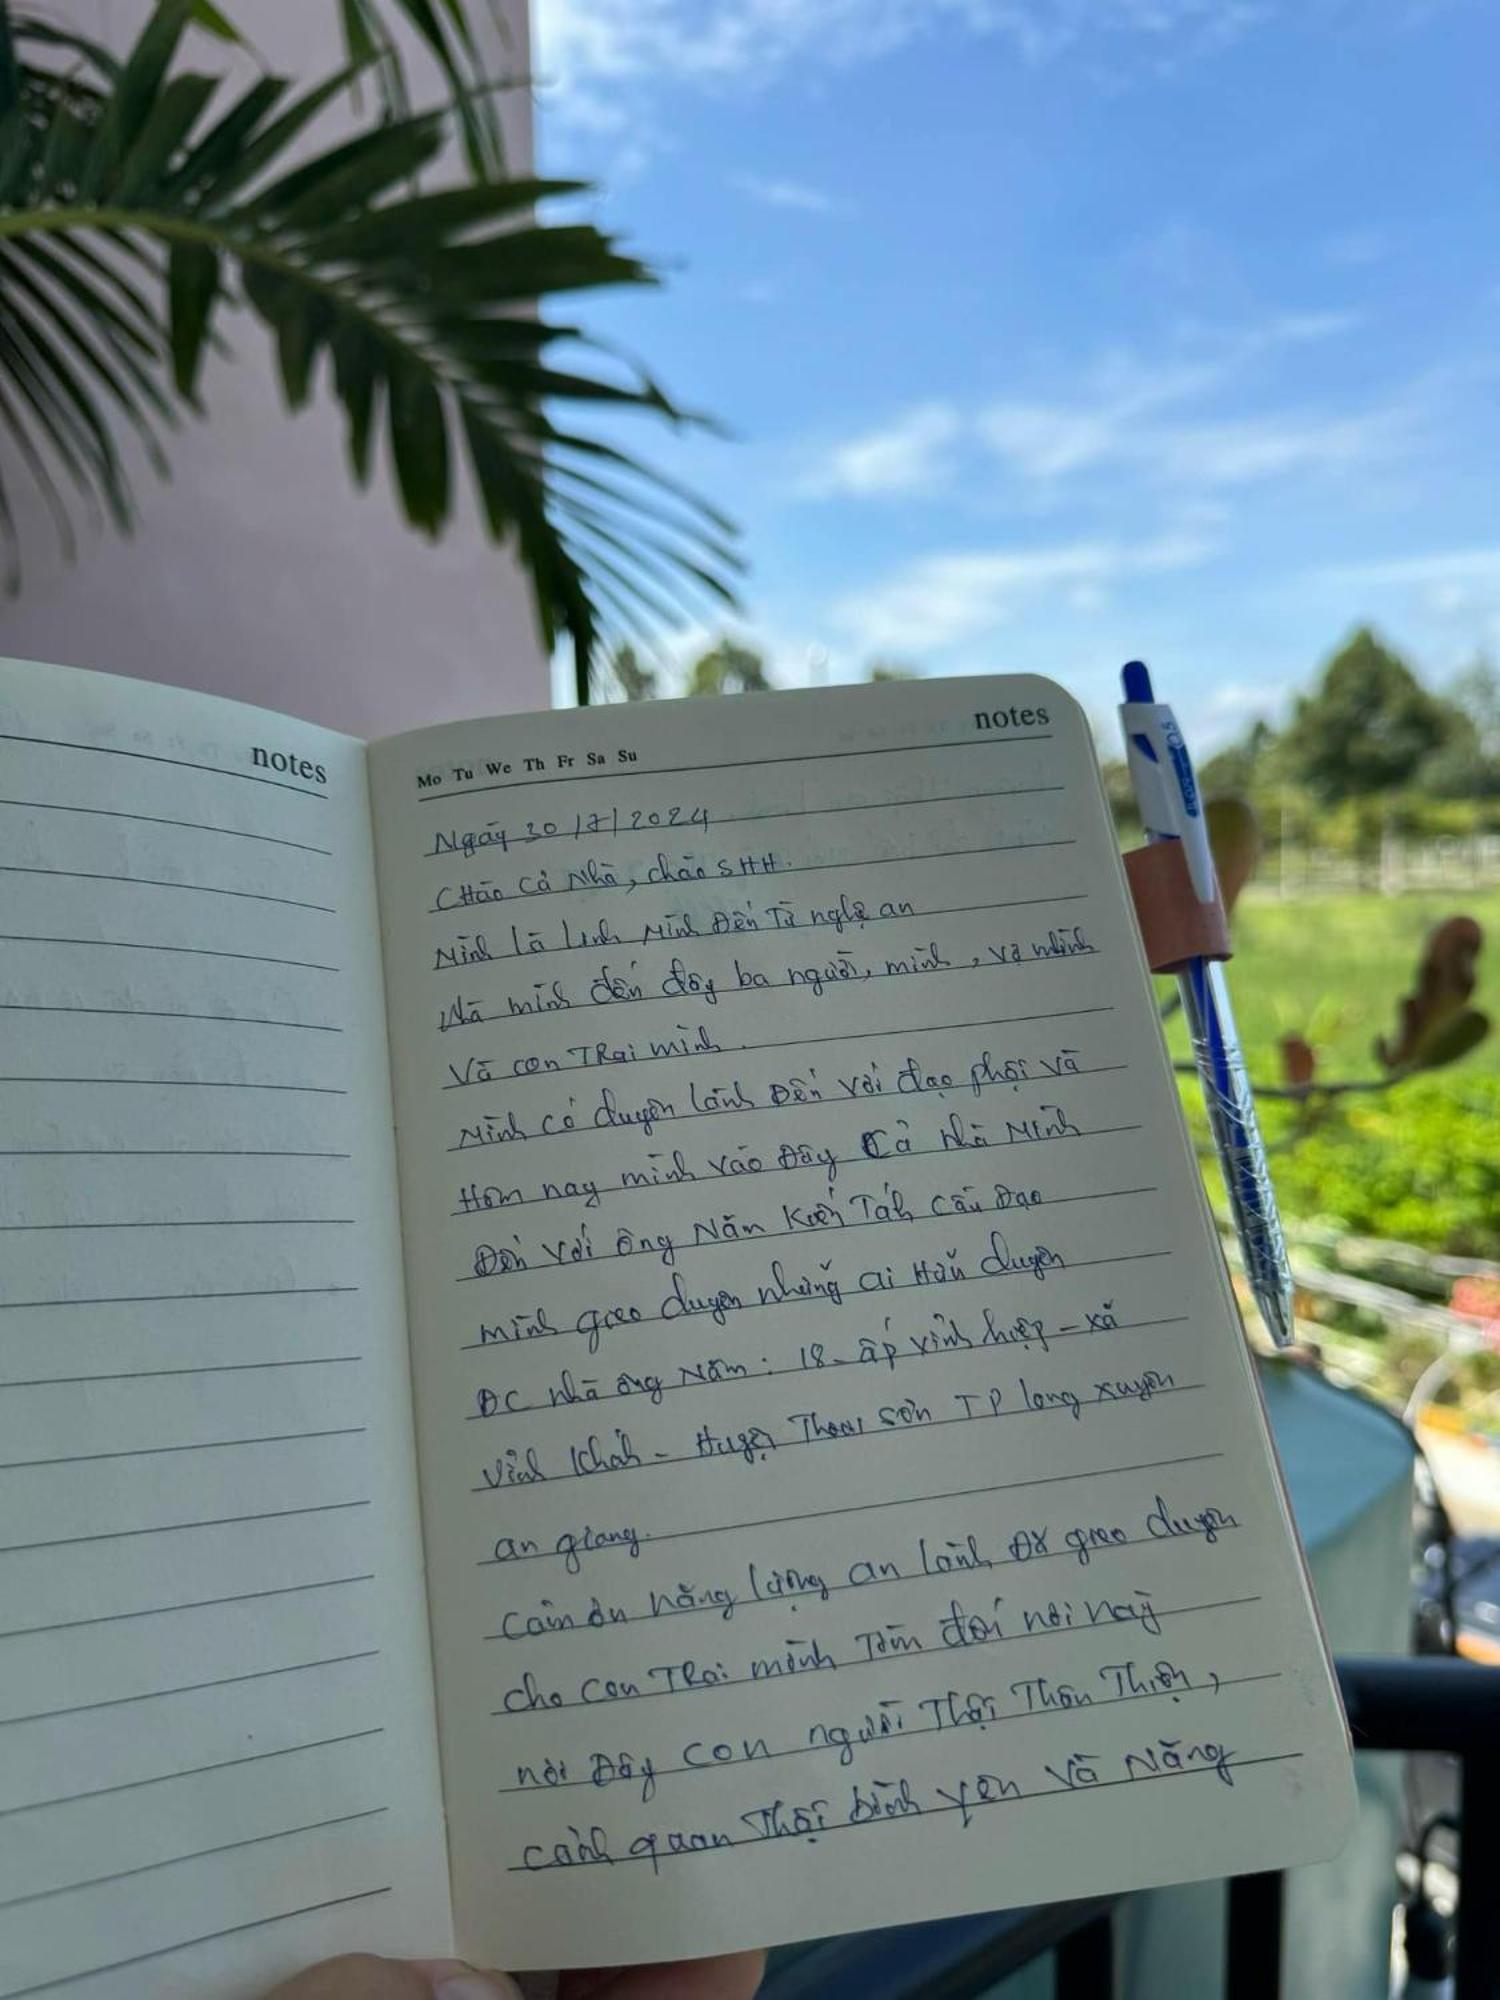 notes
notes
Mo Tu We Th Fr Sa Su
Ngày 30/7/2024
CHào cả Nhà, chào SHH.
Mình là Linh Mình Đến Từ nghệ an
Nhà mình đến đây ba người, mình, vợ mình
Và con TRai mình.
Mình có duyên lành Đến với đạo phật và
Hôm nay mình vào Đây Cả Nhà Mình
Đến với ông Năm Cầu Đạo
mình gieo duyên những ai Hữu duyên
ĐC nhà ông Năm: 18 - ấp vĩnh hiệp - xã
Vĩnh Khánh - Huyện Thoại Sơn TP long xuyên
an giang.
cảm ơn năng lượng an lành, gieo duyên
cho con TRai mình Tìm đến nơi này
nơi Đây con người Thật Thân Thiện,
cảnh quan Thật bình yên Và Năng
0.5